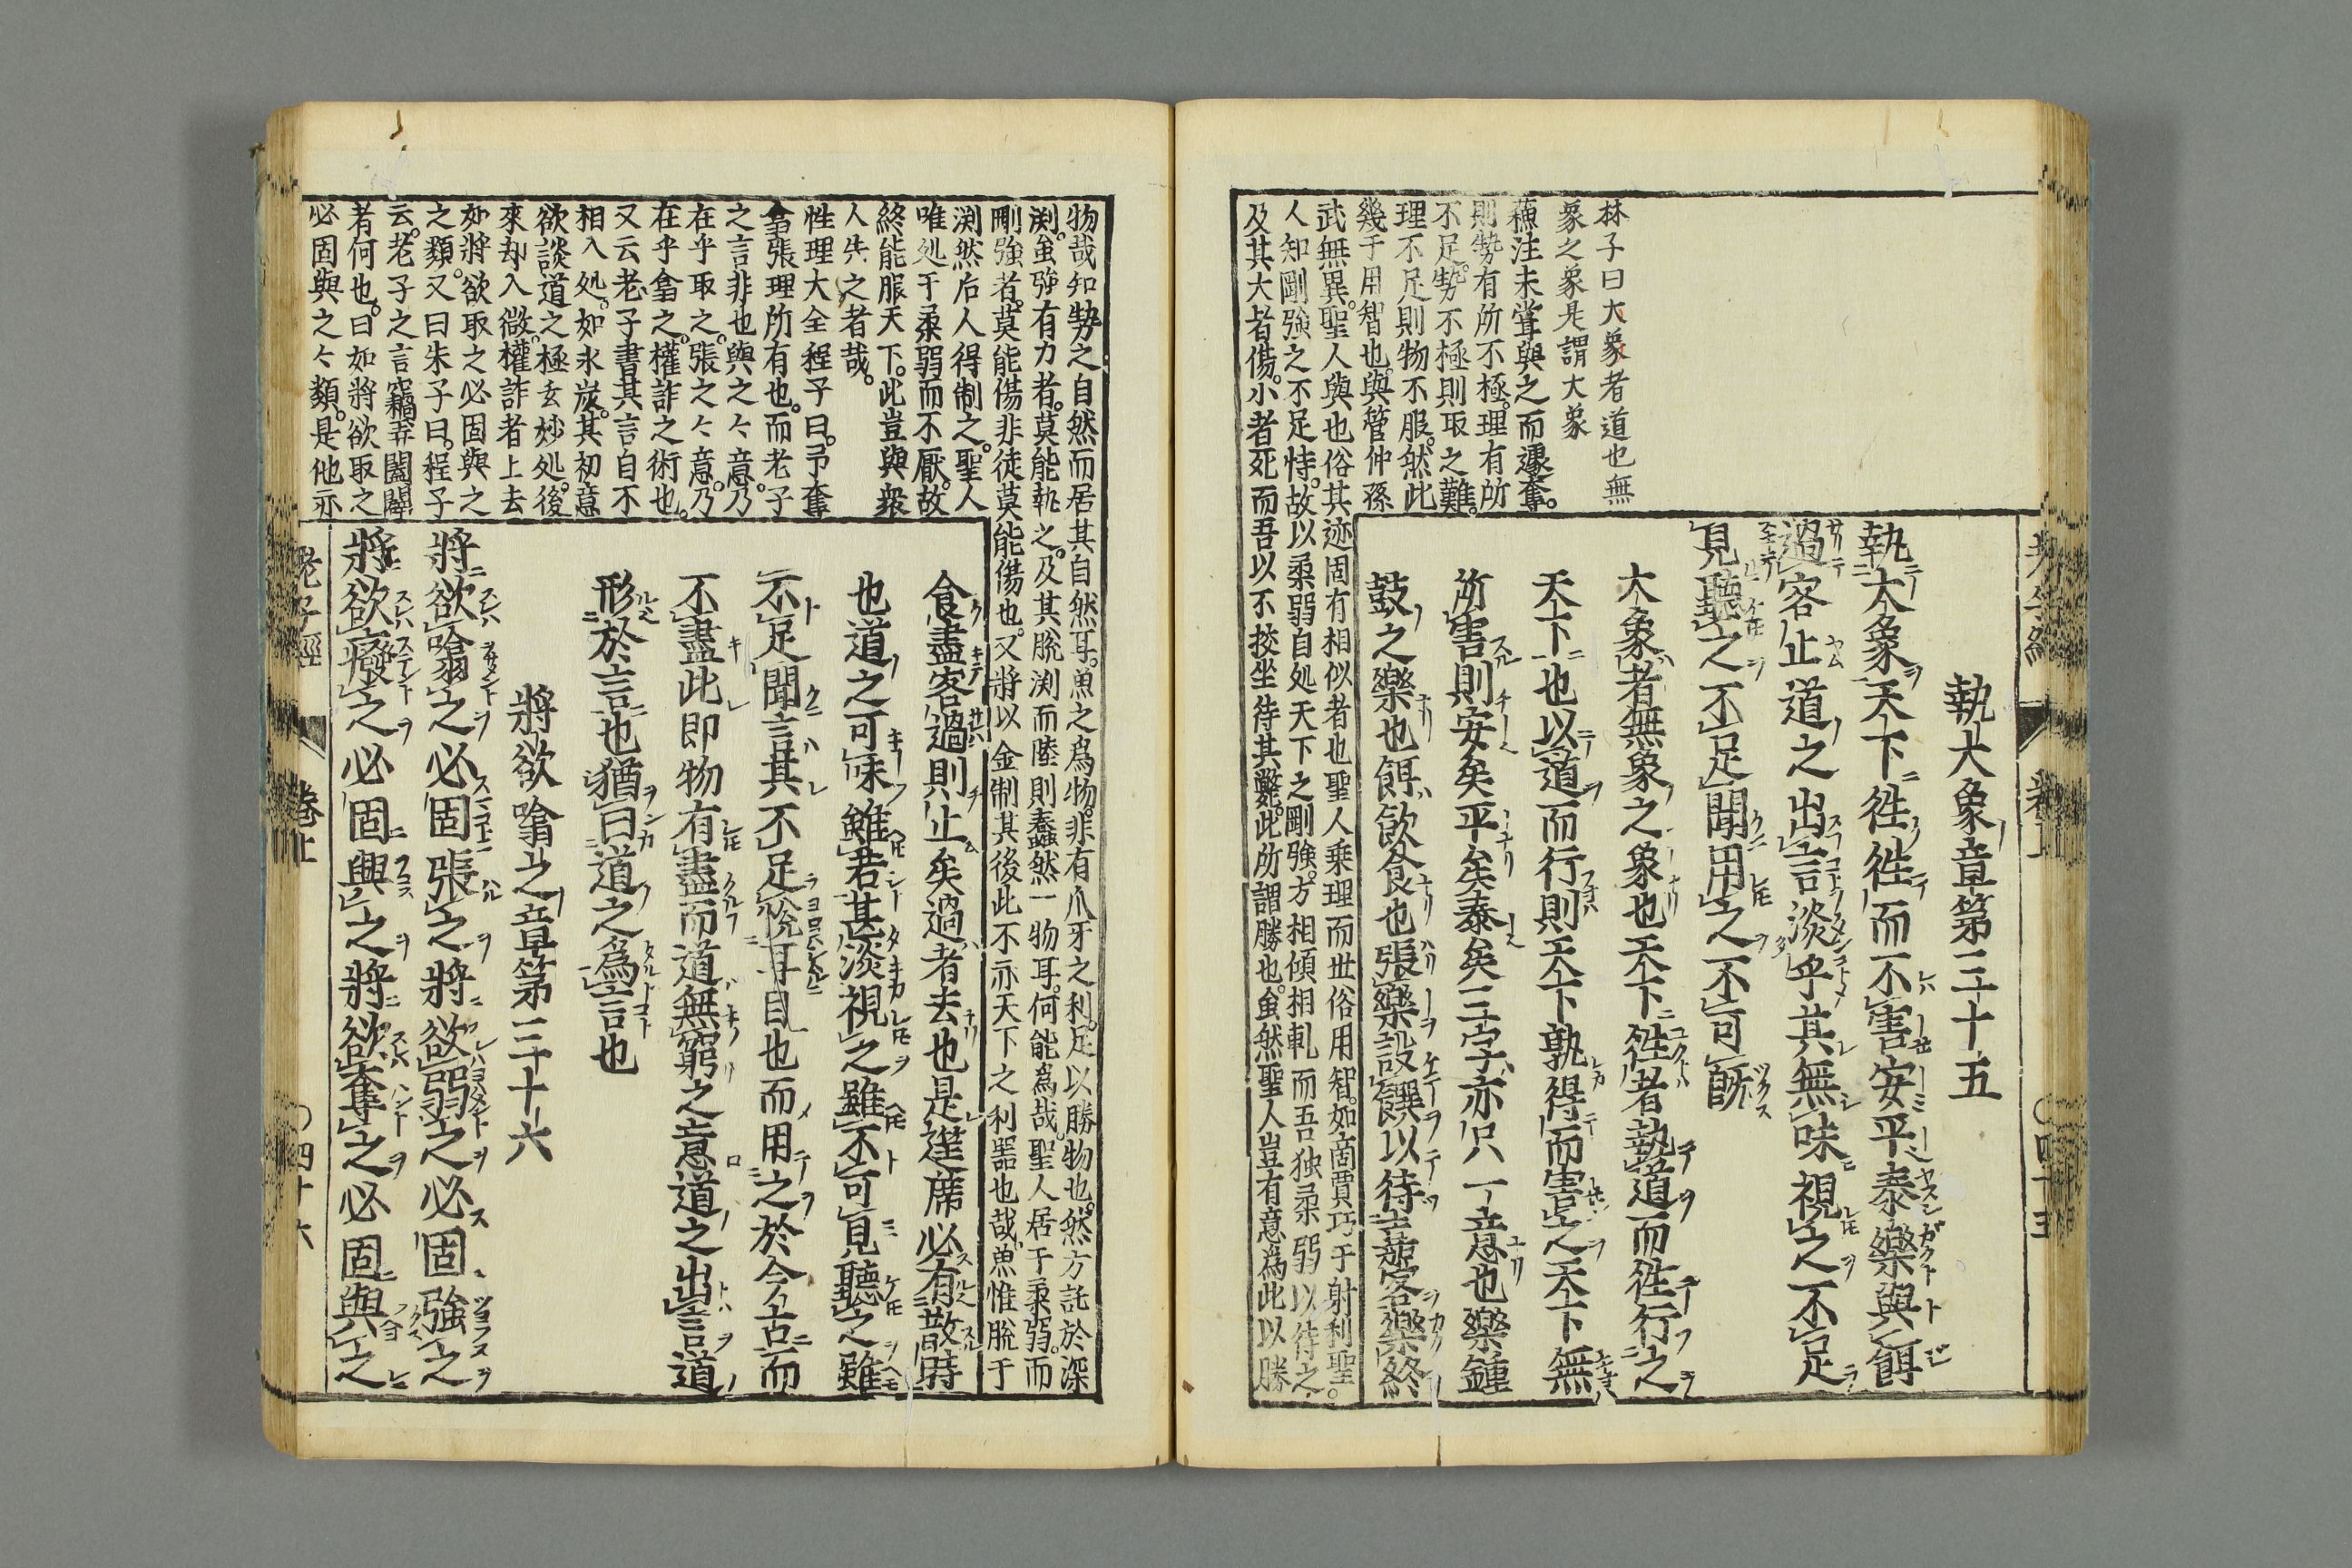 執大象章第三十五
執大象天下徃徃而不害安平泰樂與餌
過客止道之出言淡乎其無味視之不足
見聽之不足聞用之不可既
大象者無象之象也天下徃者執道而徃行之
天下也以道而行則天下孰得而害之天下無
所害則安矣平矣泰矣三字亦只一意也樂鍾
鼓之樂也餌飲食也張樂設饌以待嘉客樂終
林子曰大象者道也無
象之象是謂大象
蘓注未甞與之而遽奪。
則勢有所不極。理有所
不足。勢不極則取之難。
理不足則物不服。然此
幾于用智也。與管仲孫
武無異。聖人與也俗其迹固有相似者也聖人乗理而丗俗用智。如啇賈巧于射利聖。
人知剛強之不足恃。故以柔弱自処天下之剛強。方相傾相軋而吾独柔弱以待之
及其大者傷。小者死而吾以不挍坐待其斃。此所謂勝也。虽然聖人豈有意為此以勝
物哉知勢之自然而居其自然耳。魚之為物。非有爪牙之利。足以勝物也。然方託於深
渕。虽強有力者。莫能執之。及其脫渕而陸則蠢然一物耳。何能為哉。聖人居于柔弱。而
剛強者。莫能傷非徒莫能傷也。又將以金制其後此不亦天下之利噐也哉。魚惟脫于
渕然后人得制之。聖人
唯処于柔弱而不厭。故
終能服天下。此豈與衆
人共之者哉。
性理大全程子曰。予奪
翕張理所有也。而老子
之言非也與之々意。乃
在乎取之。張之々意。乃
在乎翕之。權詐之術也。
又云老子書其言自不
相入処。如氷炭。其初意
欲談道之極玄妙処。後
來却入做權詐者上去
如將欲取之必固與之
之類。又曰朱子曰。程子
云。老子之言竊弄闔闢
者何也。曰如將欲取之
必固與之々類。是他亦
食盡客過則止矣過者去也是筵席必有散時
也道之可味雖若甚淡視之雖不可見聽之雖
不足聞言其不足悅耳目也而用之於今古而
不盡此即物有盡而道無窮之意道之出言道
形於言也猶曰道之為言也
將欲噏之章第三十六
將欲噏之必固張之將欲弱之必固強之
將欲癈之必固興之將欲奪之必固與之
老子經 卷上 〇四十六